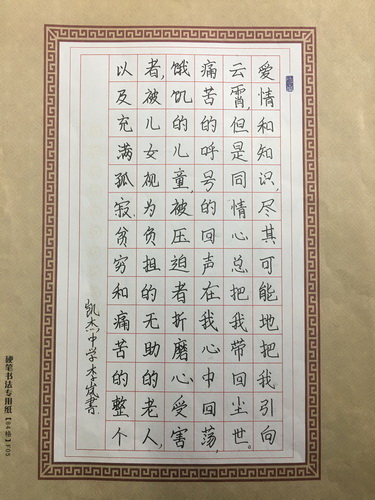 爱情和知识,尽其可能地把我引向
云霄,但是同情心总把我带回尘世。
痛苦的呼号的回声在我心中回荡,
饿饥的儿童,被压迫者折磨心受害
者,被儿女视为负担的无助的老人,
以及充满孤寂、贫穷和痛苦的整个
凯杰中学李岚书
硬笔书法专用纸【84格】F05